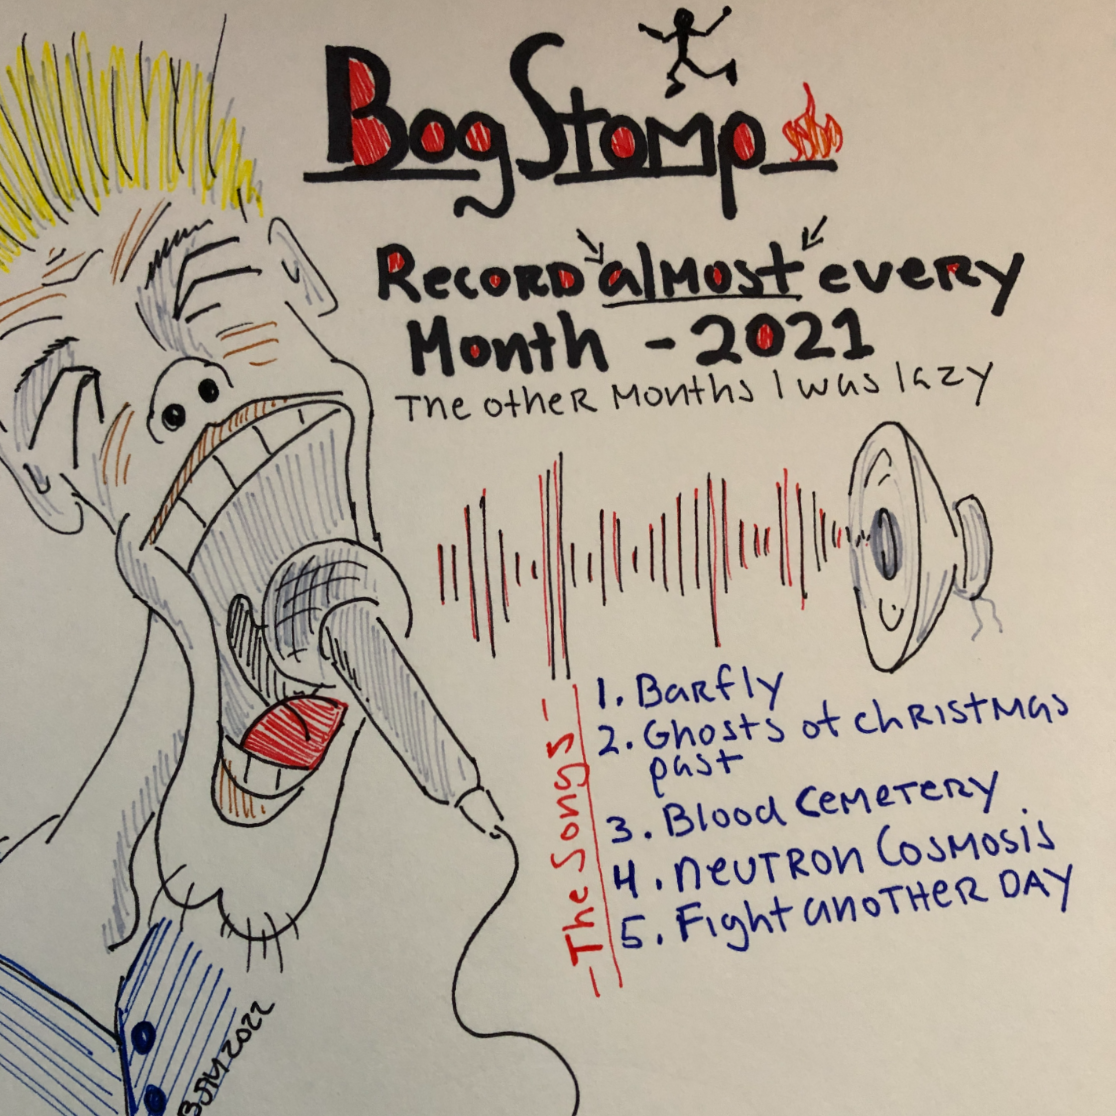 Bog Stomp
Record "almost" every
Month - 2021
The other Months I was lazy
- The Songs -
1. Barfly
2. Ghosts of christmas
past
3. Blood Cemetery
4. neutron Cosmosis
5. Fight another DAY
BJM 2022